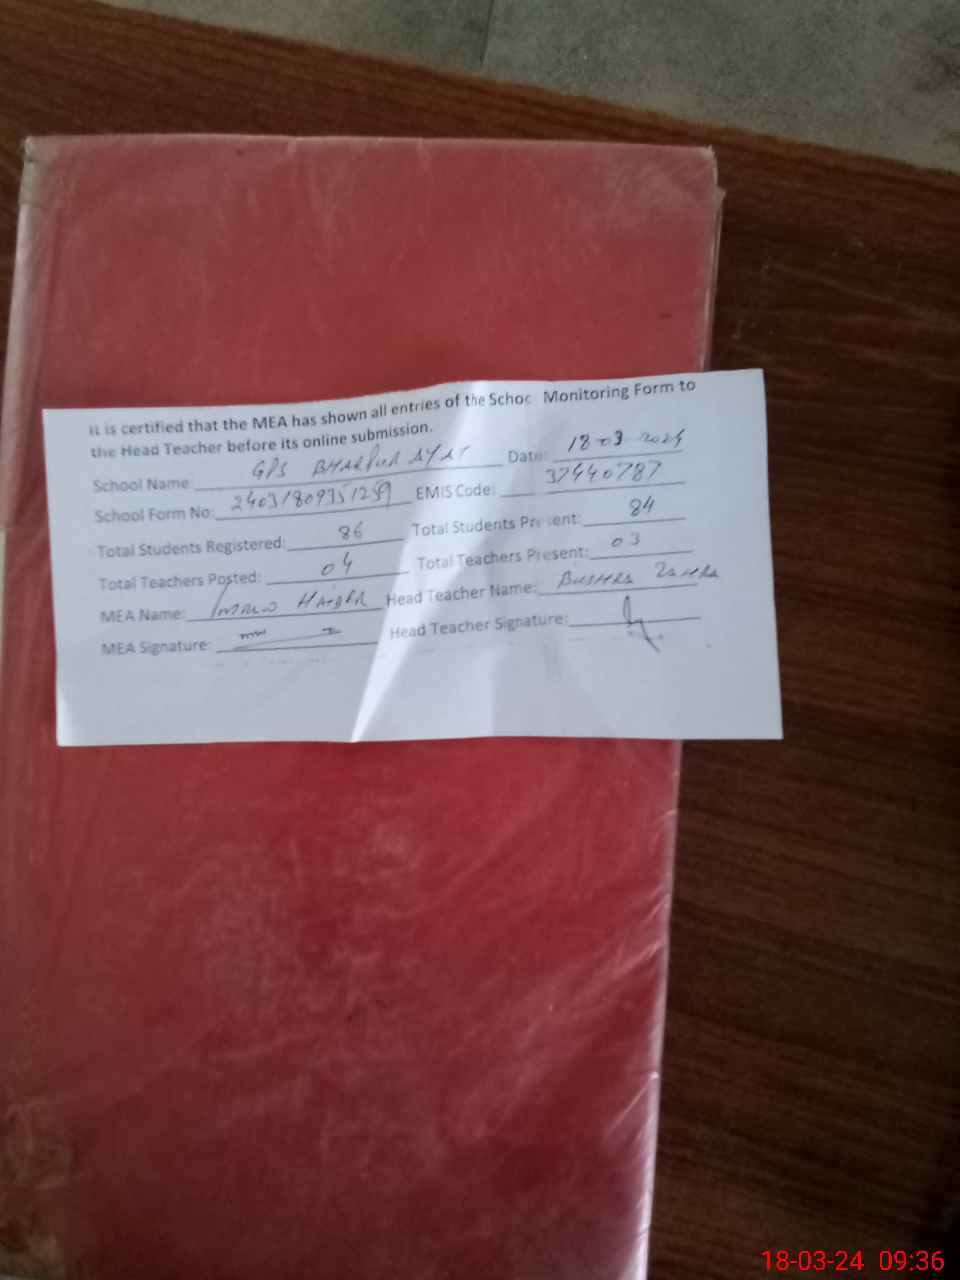 It is certified that the MEA has shown all entries of the Schoo Monitoring Form to
the Head Teacher before its online submission.
School Name: GPS BHARPUR Date: 18-03-2024
School Form No: EMIS Code: 37440787
Total Students Registered: 86 Total Students Present: 84
Total Teachers Posted: 04 Total Teachers Present: 03
MEA Name: HAIDER Head Teacher Name: BUSHRA ZAHRA
MEA Signature: Head Teacher Signature:
18-03-24 09:36